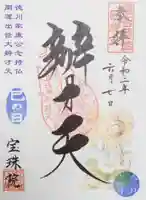 奉拝
令和二年
六月七日
辨才天
徳川家康公念持仏
開運出世大辨才天
巳の日
宝珠院